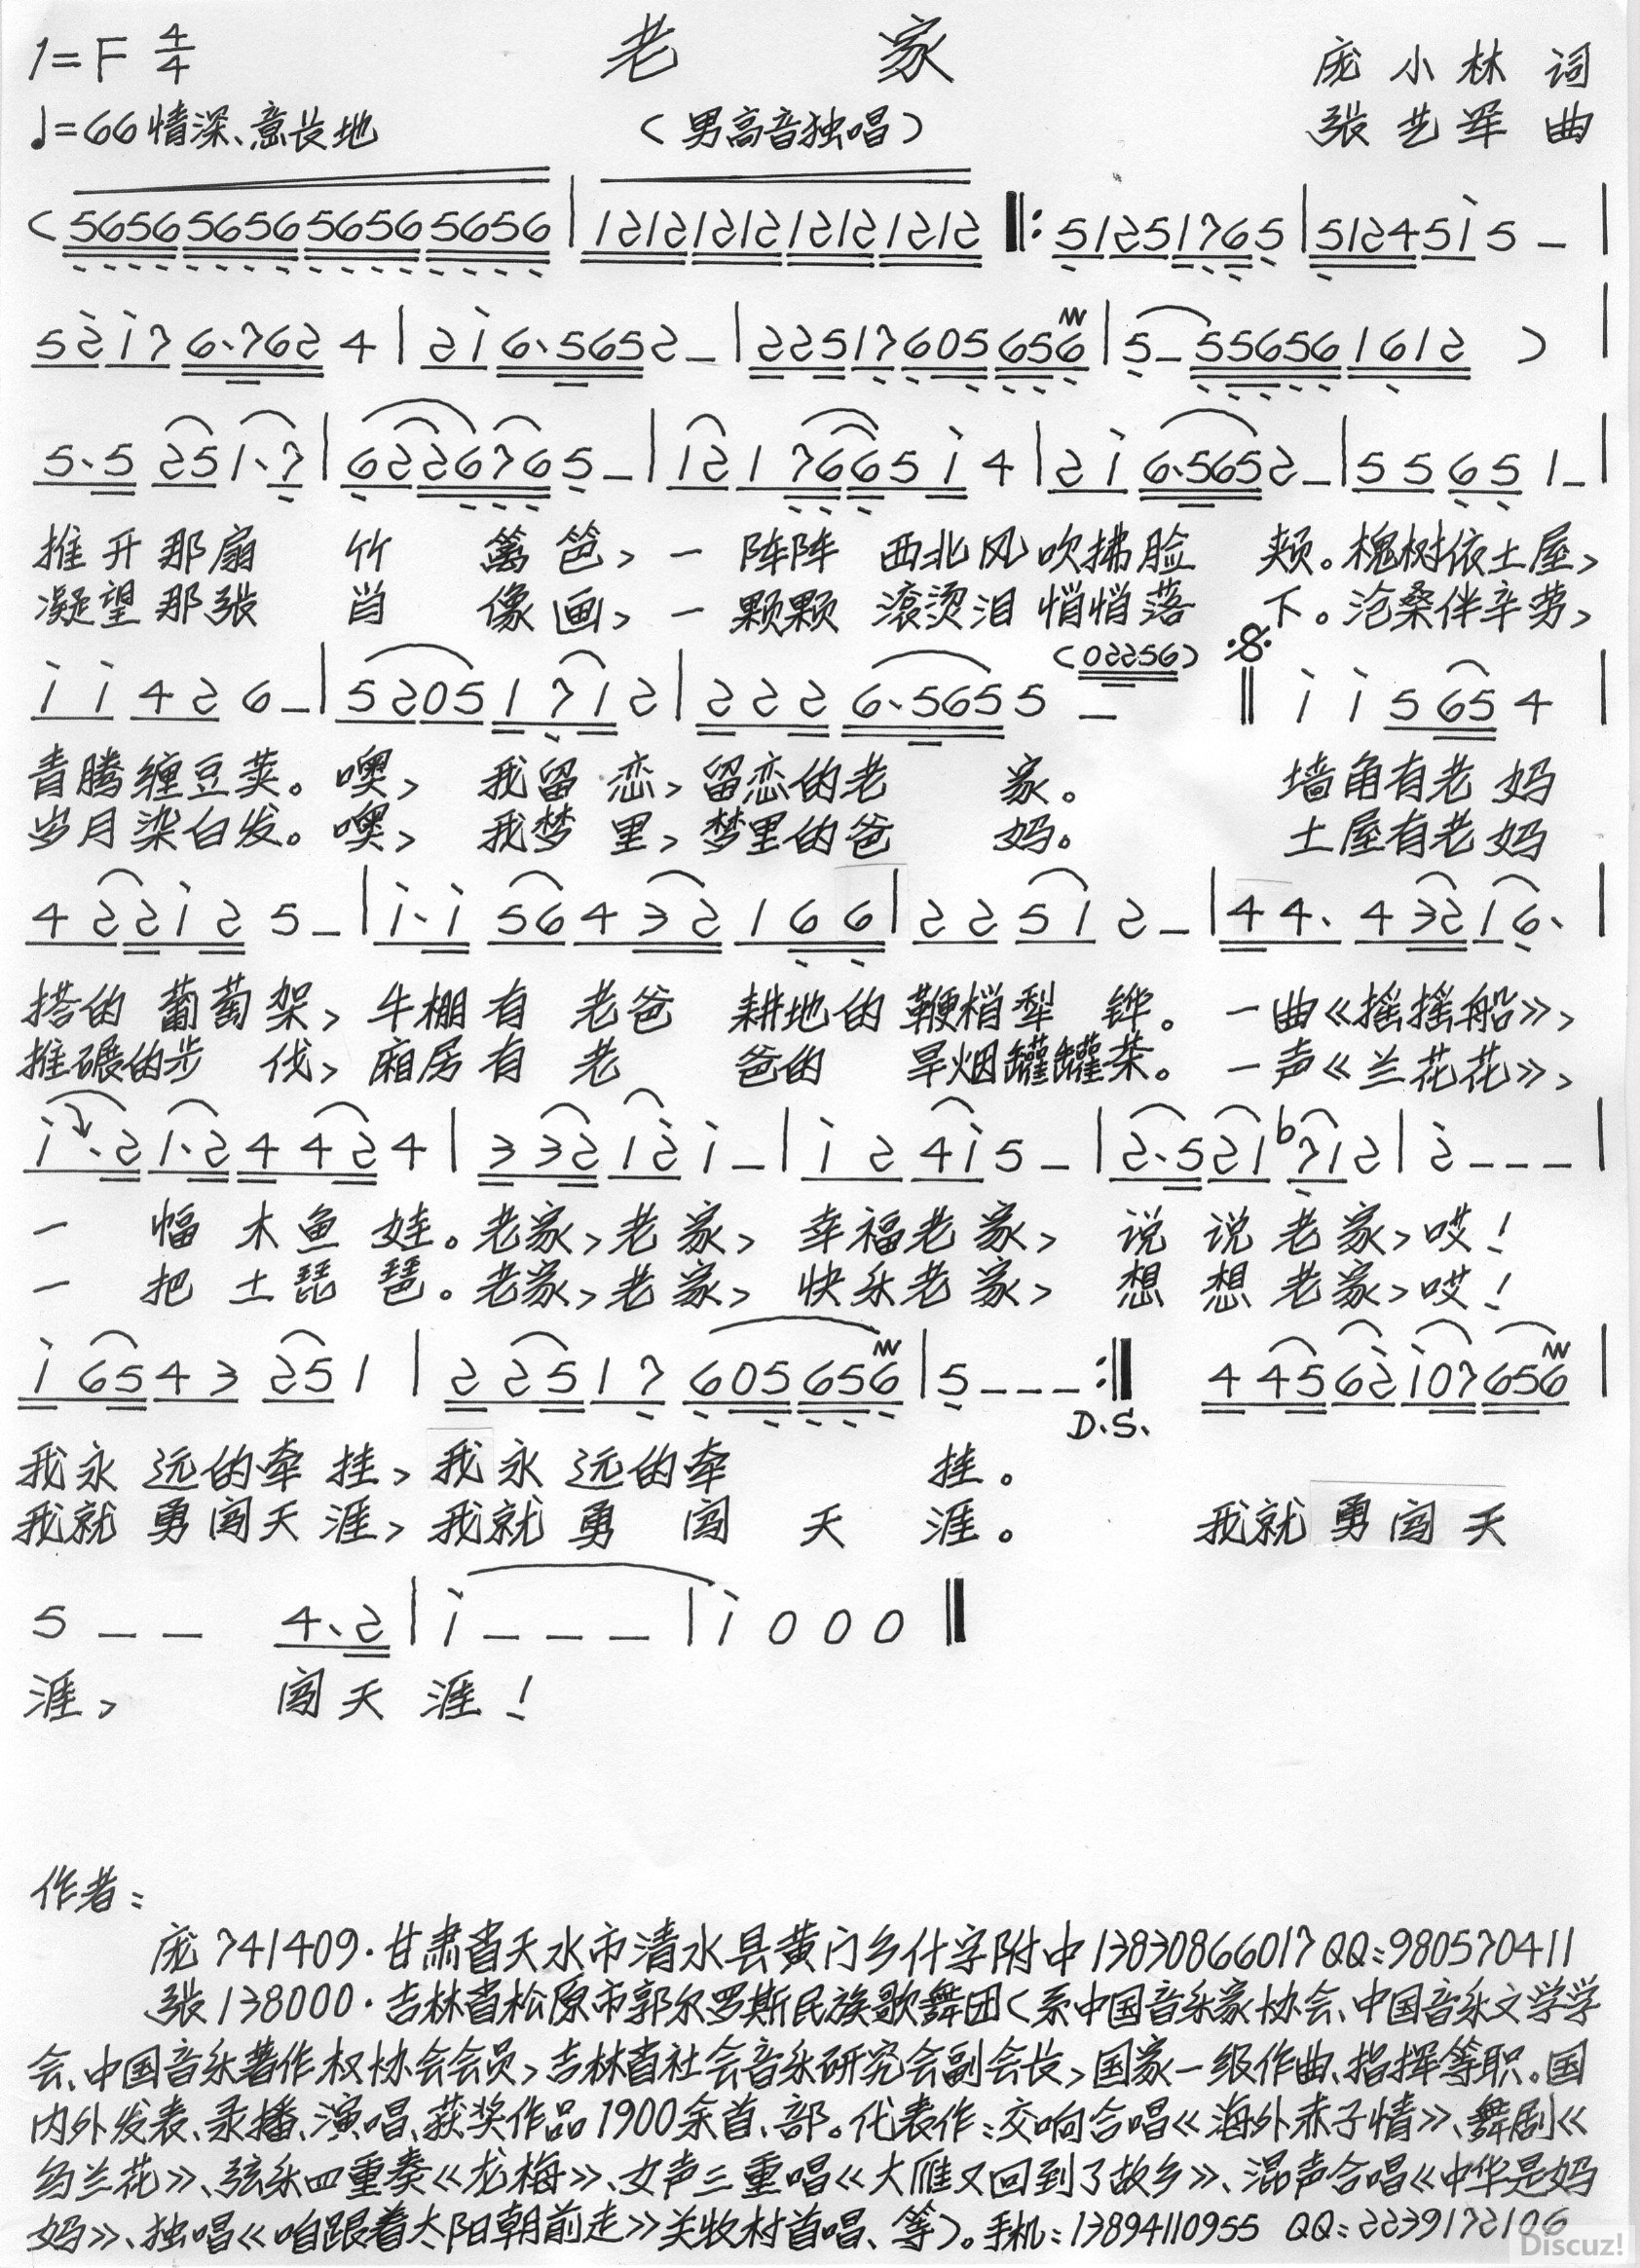 1=F 4/4 老 家 庞小林 词
♩=66 情深、意长地 (男高音独唱) 张艺军 曲
(5656 5656 5656 5656 | 1212 1212 1212 1212 ‖: 51251765 | 512451̇5 – |
52̇1̇7 6·762 4 | 21̇6·5652 – | 22517605656 | 5 – 556561612 ) |
5·5 251·7 | 6226765 – | 121766 51̇4 | 21̇6·5652 – | 55651 – |
推开那扇 竹 篱笆,一 阵阵 西北风吹拂脸 颊。槐树依土屋,
凝望那张 肖 像画,一 颗颗 滚烫泪悄悄落 下。沧桑伴辛劳,
1̇1̇426 – | 52051712 | 2226·5655 – (02256) ‖ 1̇1̇5654 |
青腾缠豆荚。噢, 我留 恋,留恋的老 家。 墙角有老妈
岁月染白发。噢, 我梦 里,梦里的爸 妈。 土屋有老妈
4221̇25 – | 1̇·1̇56432166 | 22512 – | 44·43216· |
搭的 葡萄架,牛棚有 老爸 耕地的鞭梢犁 铧。一曲《摇摇船》,
推碾的步 伐,厢房有 老 爸的 旱烟罐罐茶。一声《兰花花》,
1̇·21·24424 | 33212̇1̇ – | 1̇241̇5 – | 2·521♭712 | 2̇ – – – |
一 幅 木鱼 娃。老家,老家,幸福老家, 说 说 老家,哎!
一 把 土琵 琶。老家,老家,快乐老家, 想 想 老家,哎!
1̇65432511 | 2251760 5656 | 5 – – – :‖ 445621̇07656 |
D.S.
我永 远的牵 挂,我永 远的牵 挂。
我就 勇闯天 涯,我就 勇 闯 天 涯。 我就勇闯天
5 – – 4·2 | 1̇ – – – | 1̇000 ‖
涯, 闯天 涯!
作者:
庞741409·甘肃省天水市清水县黄门乡什字附中13830866017QQ:980570411
张138000·吉林省松原市郭尔罗斯民族歌舞团(系中国音乐家协会、中国音乐文学学
会、中国音乐著作权协会会员,吉林省社会音乐研究会副会长,国家一级作曲、指挥等职。国
内外发表、录播、演唱、获奖作品1900余首、部。代表作:交响合唱《海外赤子情》、舞剧《
约兰花》、弦乐四重奏《龙梅》、女声三重唱《大雁又回到了故乡》、混声合唱《中华是妈
妈》、独唱《咱跟着太阳朝前走》关牧村首唱、等)。手机:13894110955 QQ:2239172106
Discuz!